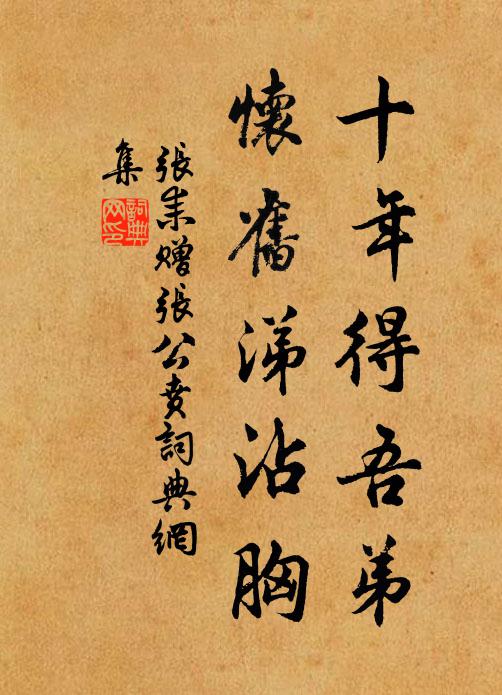 十年得吾弟
懷舊涕沾胸
張耒贈張公賁詞典網
集
詞典網印